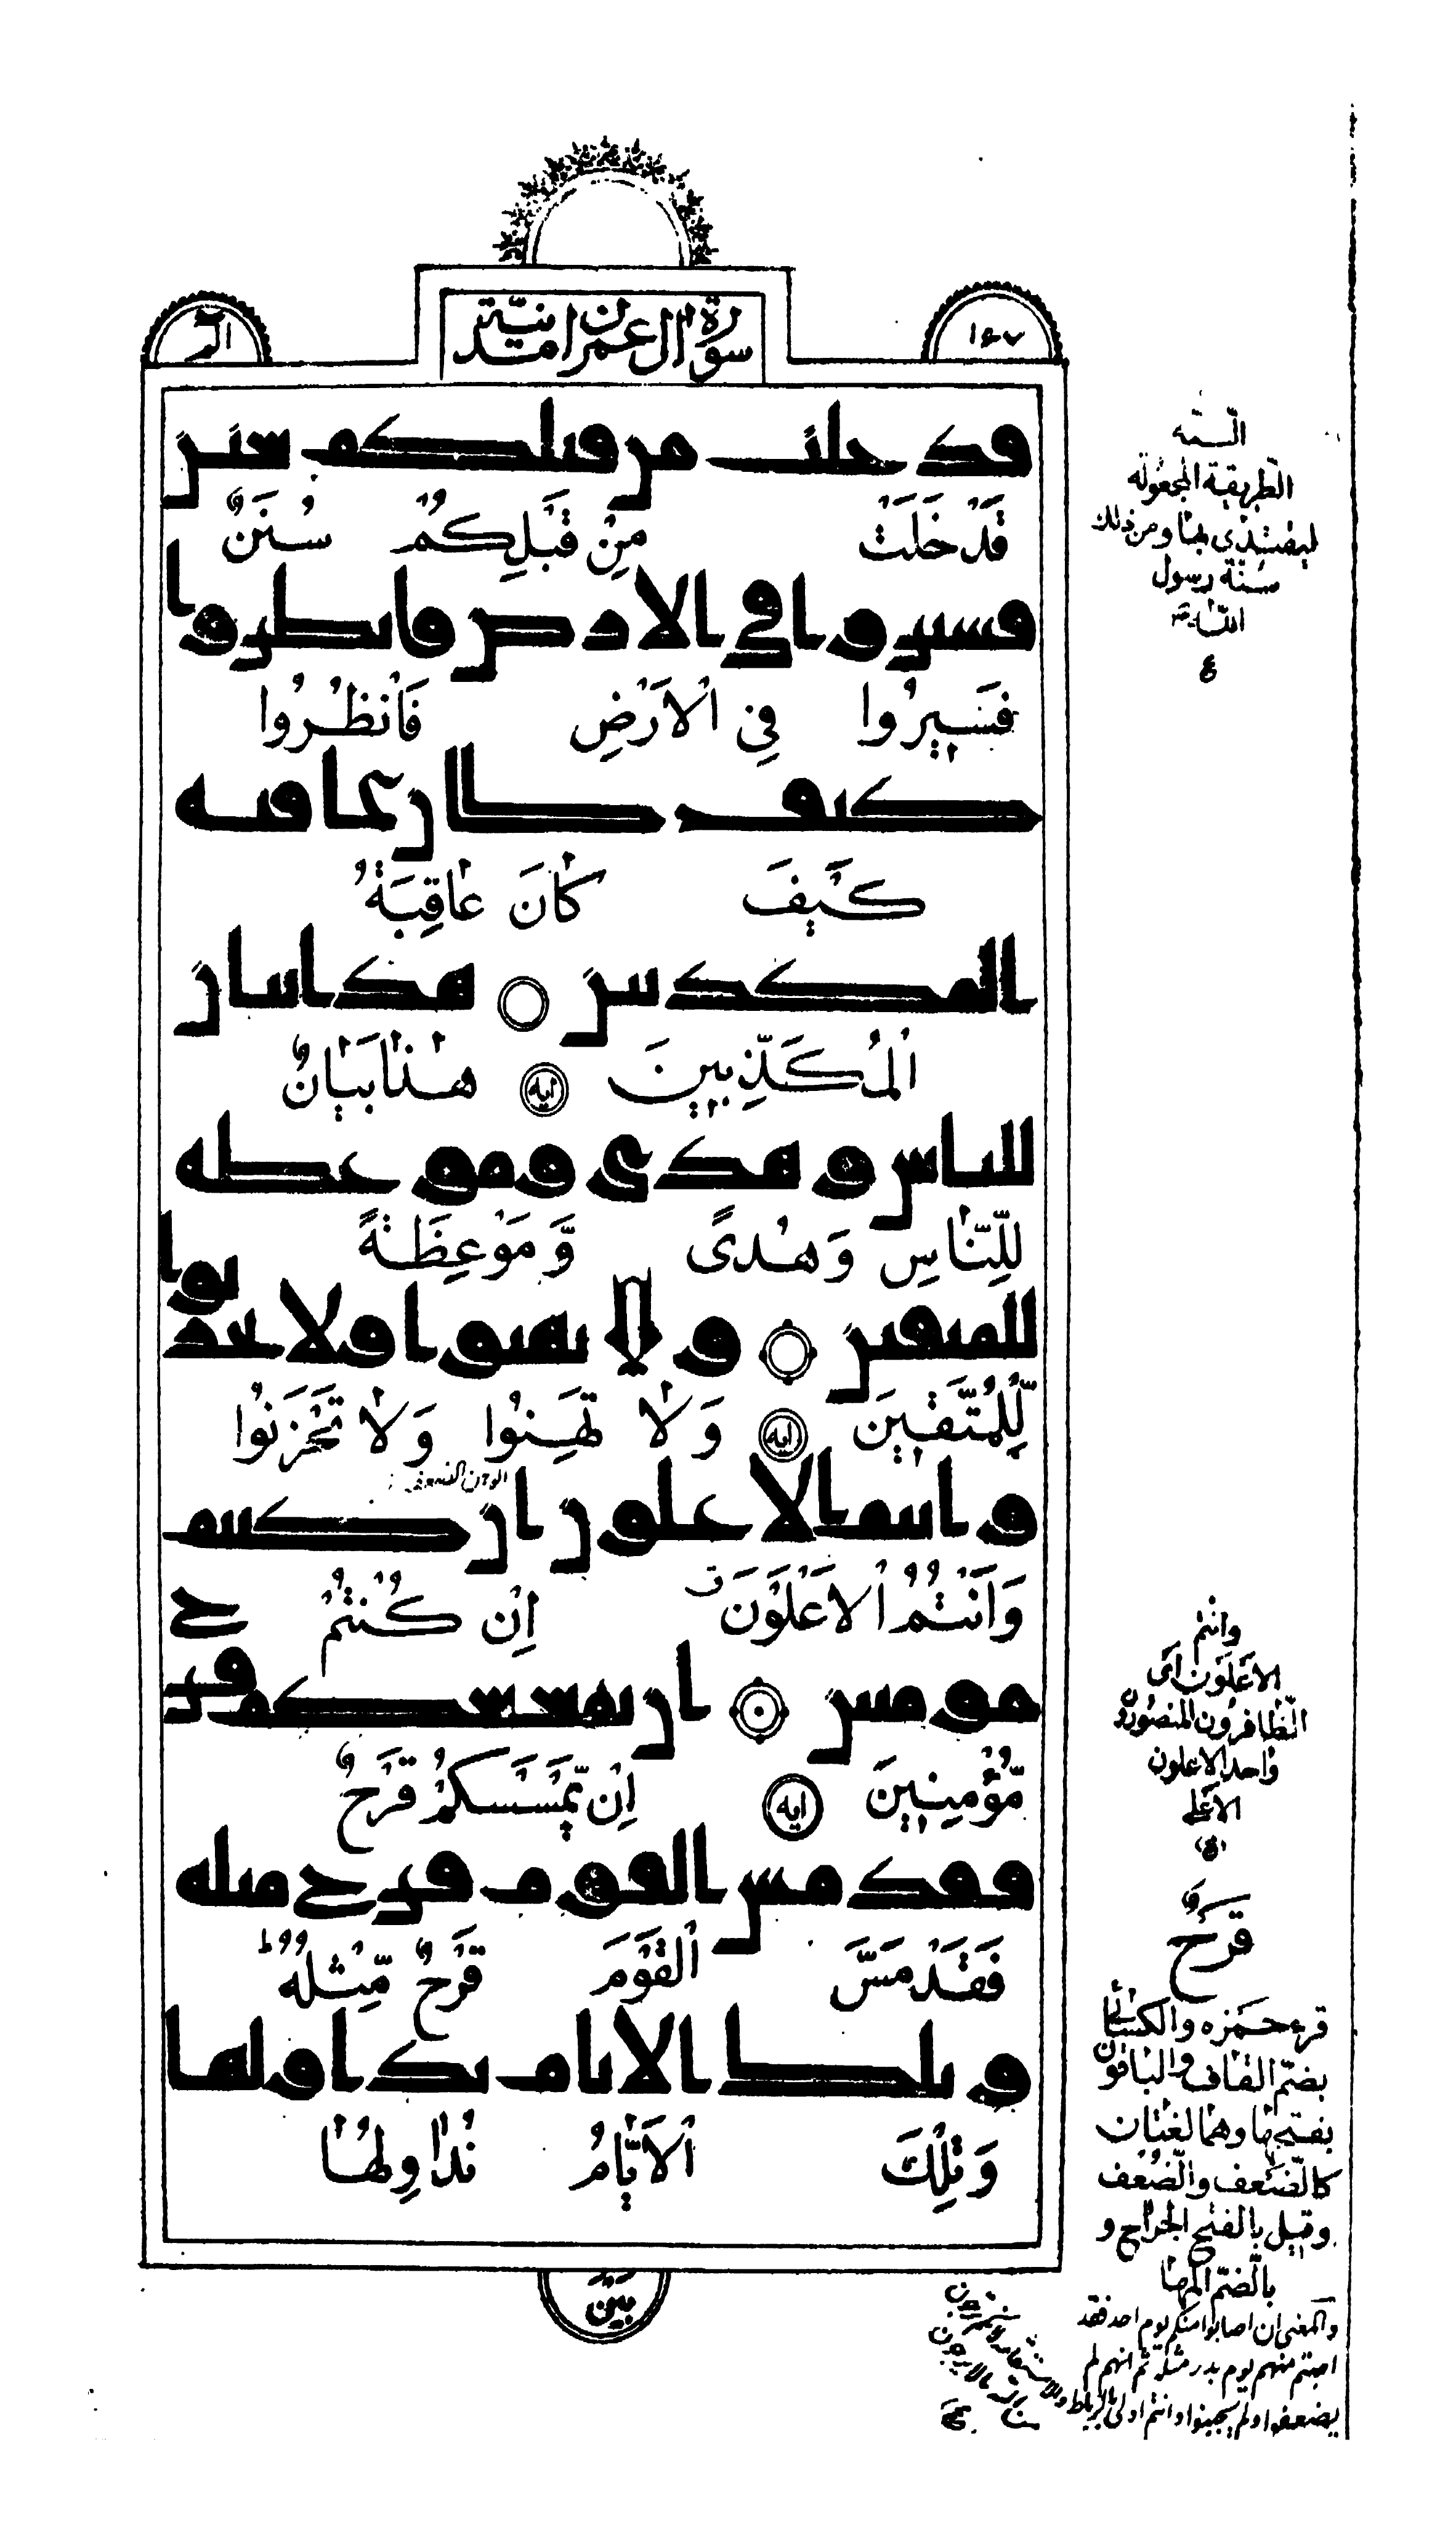 ١٤٧
سورة آل عمرٰن مدنیّة
الٓمٓ
قد خلت مں قٮلكم سںں
قَدْ خَلَتْ مِنْ قَبْلِكُمْ سُنَنٌ
فسٮروا فى الارص فاٮطروا
فَسِيرُوا فِي الْاَرْضِ فَانْظُرُوا
كٮف كاں عاقٮه
كَيْفَ كَانَ عَاقِبَةُ
المكدٮںں هداٮىاں
الْمُكَذِّبِينَ ايه هٰذَا بَيَانٌ
للٮاس وهدى وموعطه
لِّلنَّاسِ وَهُدًى وَّ مَوْعِظَةً
للمٮٯٮں ولا ٮهٮوا ولا ٮحرٮوا
لِّلْمُتَّقِينَ ايه وَلَا تَهِنُوا وَلَا تَحْزَنُوا
الوهن الضعف
واٮٮم الاعلوں اں كٮٮم
وَاَنْتُمُ الْاَعْلَوْنَ اِنْ كُنْتُمْ
مومٮٮں اں ٮمسسكم ڡرح
مُّؤْمِنِينَ ايه اِنْ يَّمْسَسْكُمْ قَرْحٌ
ڡڡد مس الڡوم ڡرح مٮله
فَقَدْ مَسَّ الْقَوْمَ قَرْحٌ مِّثْلُهُ ط
وٮلك الاٮام ٮداولها
وَتِلْكَ الْاَيَّامُ نُدَاوِلُهَا
بَيْنَ
السنّة
الطريقة المجعولة
ليقتدى بها ومن ذلك
سنّة رسول
اللّٰه ص
ع
وانتم
الاعلون اى
الظافرون المنصورون
واحد الاعلون
الاعلى
قَرْحٌ
قرء حمزه والكسائى
بضمّ القاف والباقون
بفتحها وهما لغتان
كالضَّعف والضُّعف
وقيل بالفتح الجراح و
بالضّم المها
والمعنى ان اصابوا منكم يوم احد فقد
اصبتم منهم يوم بدر مثله ثم انهم لم
يضعفوا ولم يجبنوا وانتم اولى